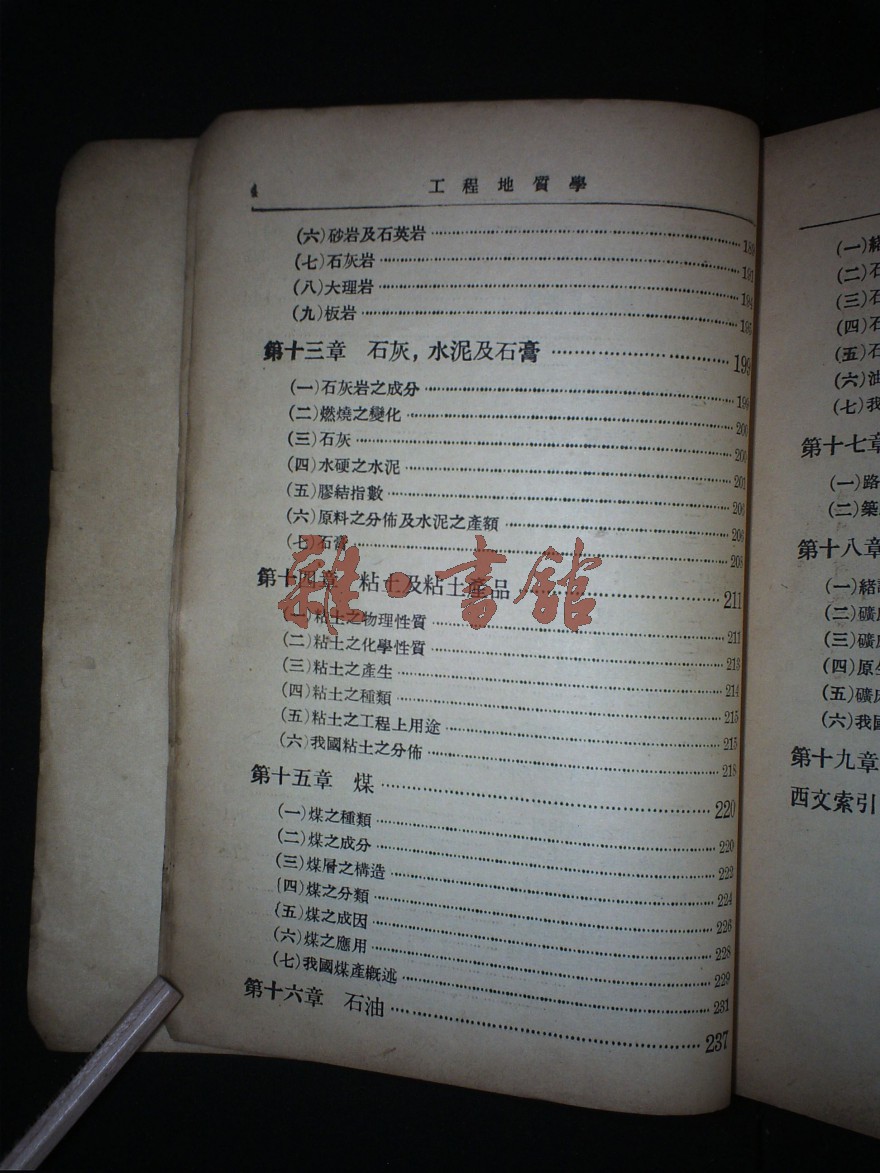 4 工程地質學
(六)砂岩及石英岩 189
(七)石灰岩 191
(八)大理岩 194
(九)板岩
第十三章 石灰，水泥及石膏 199
(一)石灰岩之成分 199
(二)燃燒之變化 200
(三)石灰 200
(四)水硬之水泥 201
(五)膠結指數
(六)原料之分佈及水泥之產額
(七)石膏 208
第十四章 粘土及粘土產品 211
雜·書館
(一)粘土之物理性質 211
(二)粘土之化學性質 213
(三)粘土之產生 214
(四)粘土之種類 215
(五)粘土之工程上用途 215
(六)我國粘土之分佈 218
第十五章 煤 220
(一)煤之種類 220
(二)煤之成分 222
(三)煤層之構造 224
(四)煤之分類 226
(五)煤之成因 228
(六)煤之應用 229
(七)我國煤產概述 231
第十六章 石油 237
(一)緒
(二)石
(三)石
(四)石
(五)石
(六)油
(七)我
第十七章
(一)路
(二)築
第十八章
(一)緒
(二)礦
(三)礦
(四)原
(五)礦
(六)我
第十九章
西文索引